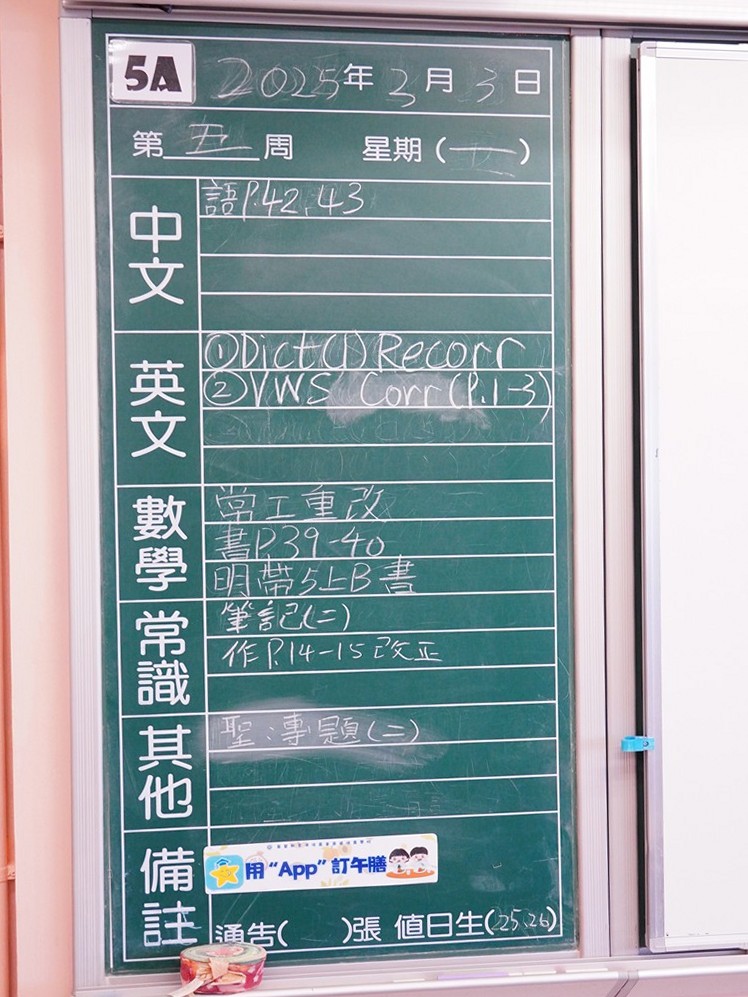 5A 2025年3月3日
第五周 星期(一)
中文
語P.42,43
英文
①Dict(1)Recorr
②VWS Corr(P.1-3)
數學
常工重改
書P.39-40
明帶5上B書
常識
筆記(二)
作P.14-15改正
其他
聖:專題(二)
備註
用“App”訂午膳
通告( )張 值日生(25,26)